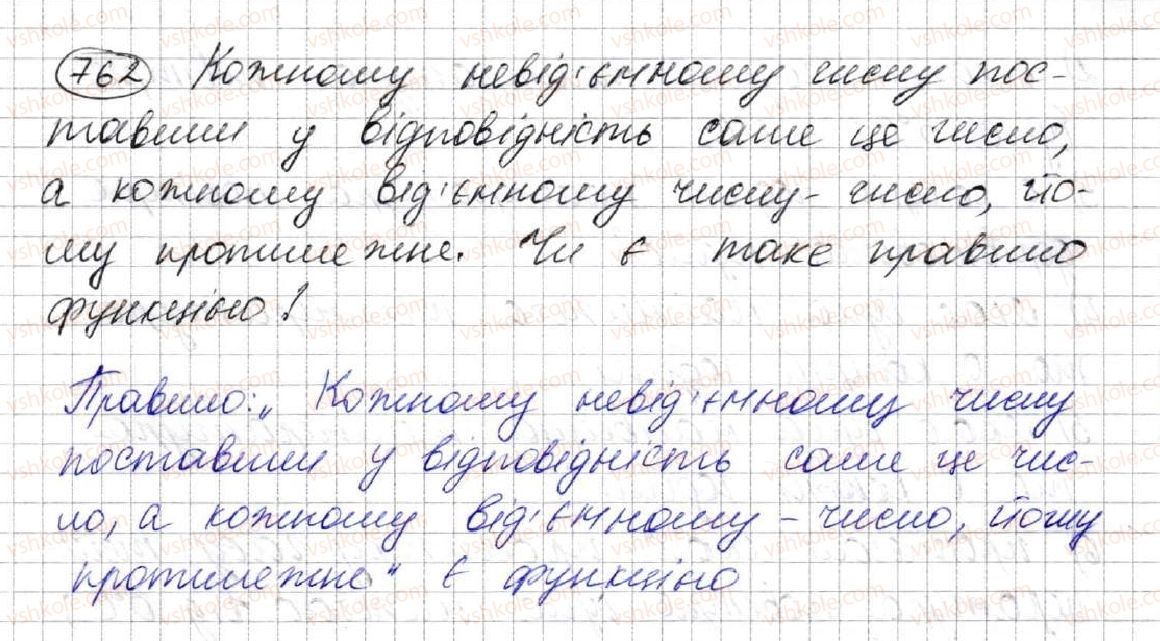 762 Кожному невід'ємному числу пос-
тавили у відповідність саме це число,
а кожному від'ємному числу - число, йо-
му протилежне. Чи є таке правило
функцією?
Правило: „Кожному невід'ємному числу
поставили у відповідність саме це чис-
ло, а кожному від'ємному - число, йому
протилежне" є функцією